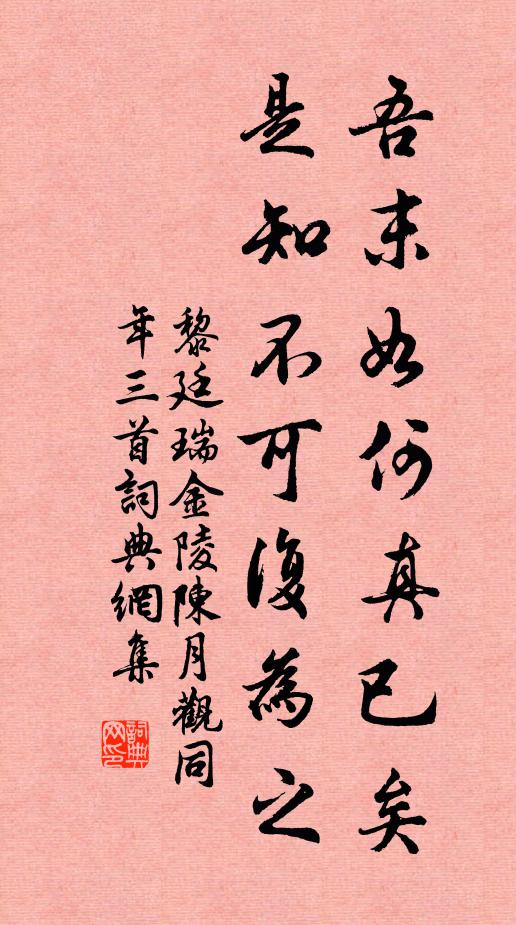 吾末如何真已矣
是知不可復為之
黎廷瑞金陵陳月觀同
年三首詞典網集
詞典
网印